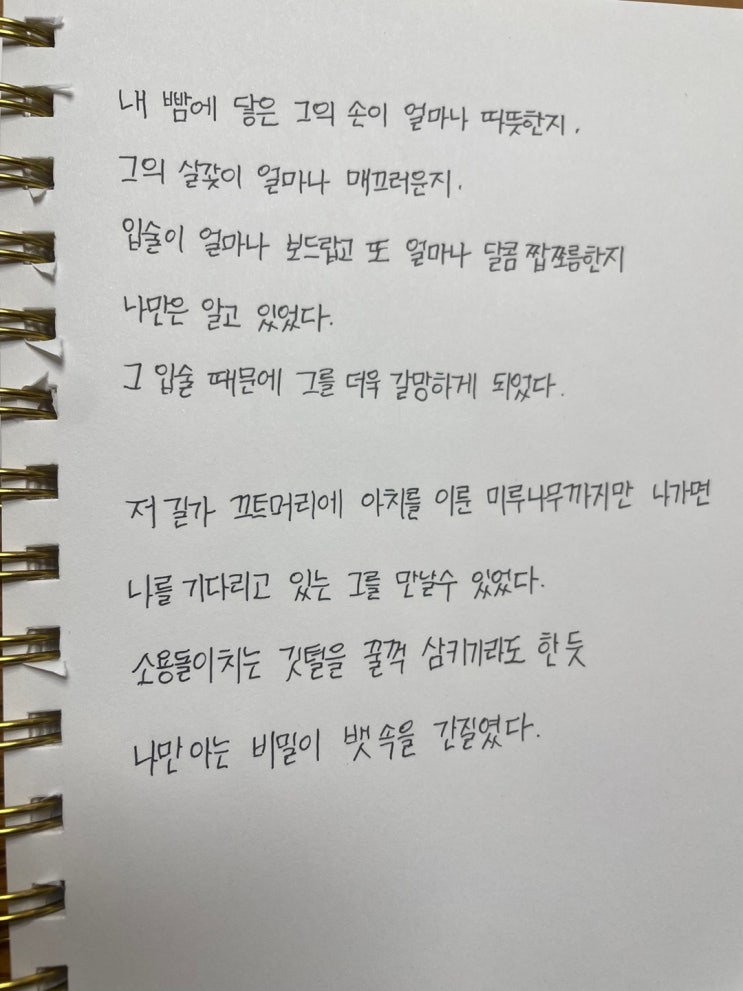 내 뺨에 닿은 그의 손이 얼마나 따뜻한지.
그의 살갗이 얼마나 매끄러운지.
입술이 얼마나 보드랍고 또 얼마나 달콤 짭쪼름한지
나만은 알고 있었다.
그 입술 때문에 그를 더욱 갈망하게 되었다.
저 길가 끄트머리에 아치를 이룬 미루나무까지만 나가면
나를 기다리고 있는 그를 만날수 있었다.
소용돌이치는 깃털을 꿀꺽 삼키기라도 한 듯
나만 아는 비밀이 뱃속을 간질였다.